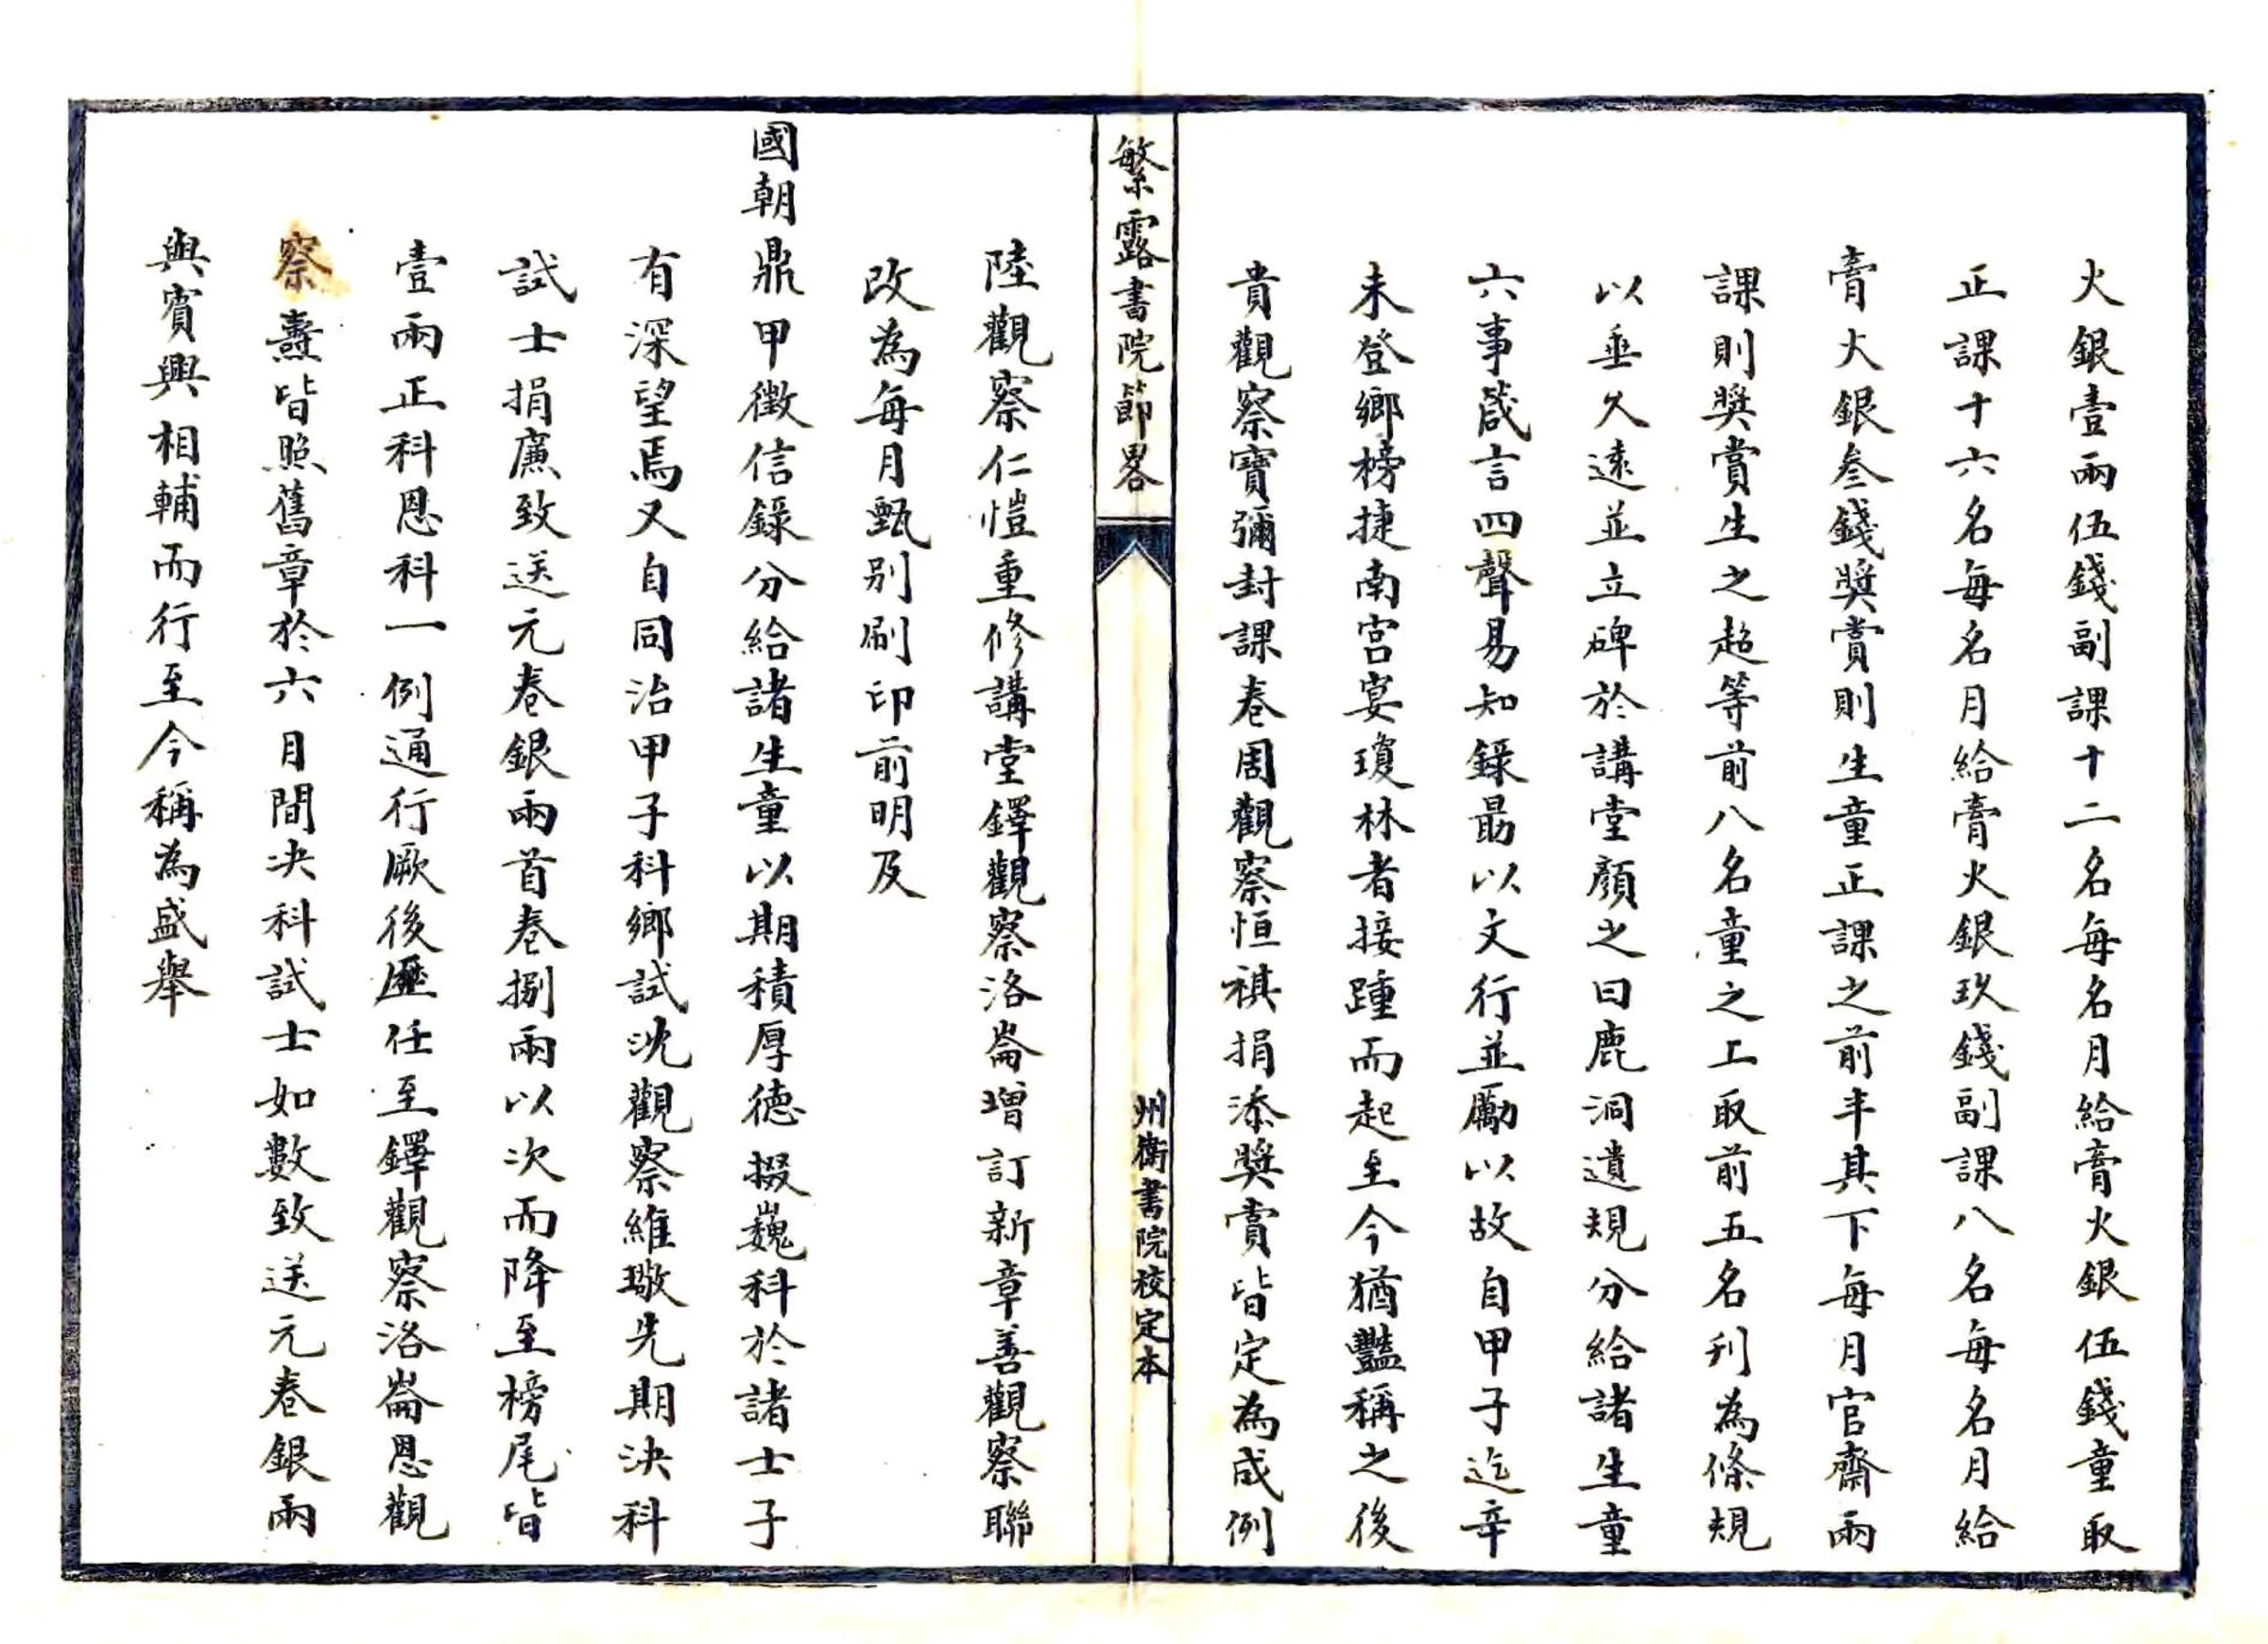 火銀壹兩伍錢副課十二名每名月給膏火銀伍錢童取
正課十六名每名月給膏火銀玖錢副課八名每名月給
膏火銀叁錢獎賞則生童正課之前半其下每月官齋兩
課則獎賞生之超等前八名童之上取前五名刋為條規
以垂久遠並立碑於講堂顏之曰鹿洞遺規分給諸生童
六事箴言四聲易知錄勗以文行並勵以故自甲子迄辛
未登鄉榜捷南宮宴瓊林者接踵而起至今猶豔稱之後
貴觀察寶彌封課卷周觀察恒祺捐添獎賞皆定為成例
繁露書院節畧
州衛書院校定本
陸觀察仁愷重修講堂鐸觀察洛崙增訂新章善觀察聯
改為每月甄別刷印前明及
國朝鼎甲徵信錄分給諸生童以期積厚德掇巍科於諸士子
有深望焉又自同治甲子科鄉試沈觀察維璥先期決科
試士捐廉致送元卷銀兩首卷捌兩以次而降至榜尾皆
壹兩正科恩科一例通行厥後歷任至鐸觀察洛崙恩觀
察燾皆照舊章於六月間决科試士如數致送元卷銀兩
與賓興相輔而行至今稱為盛舉